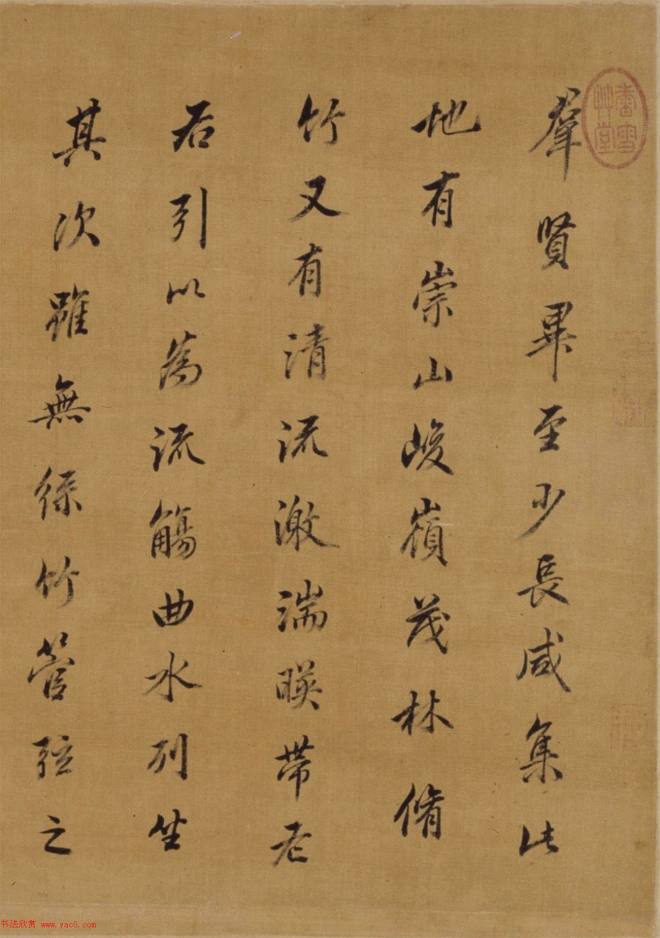 羣賢畢至少長咸集此
地有崇山峻嶺茂林脩
竹又有清流激湍暎帶左
右引以為流觴曲水列坐
其次雖無絲竹管弦之
書雪草堂
书法欣赏 www.yac8.com